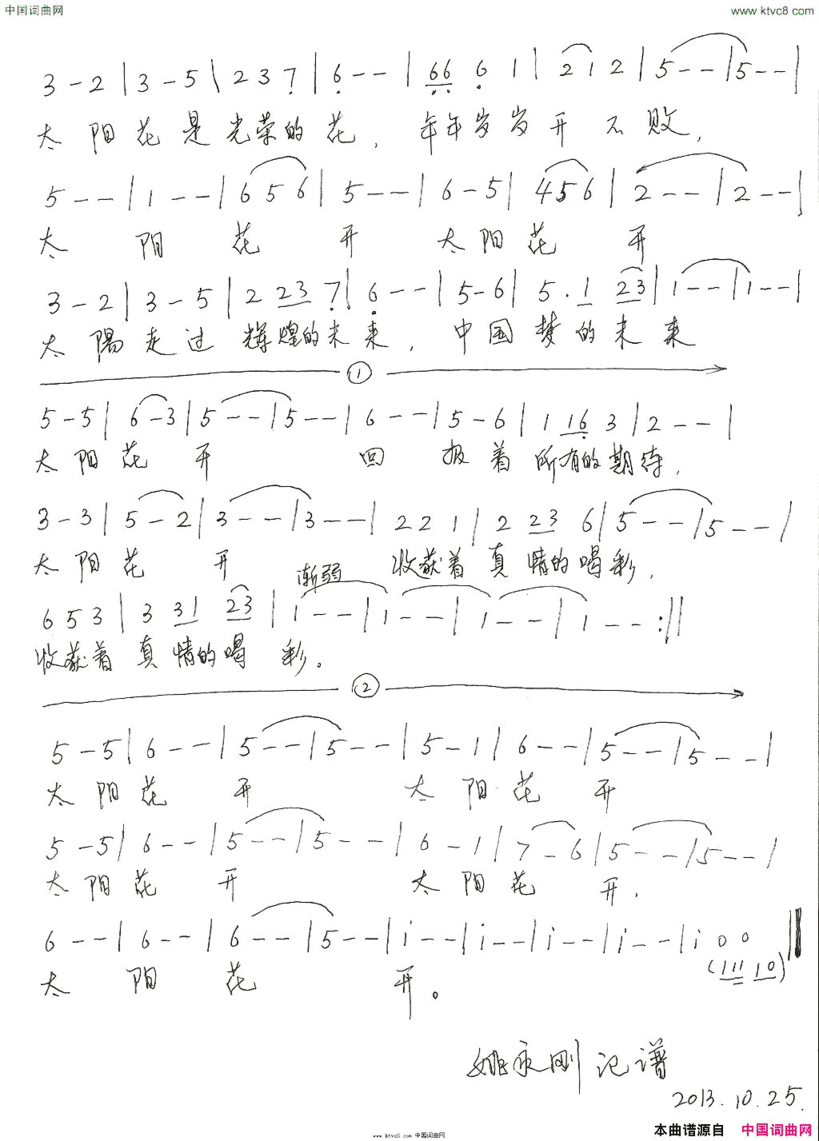 中国词曲网 www.ktvc8.com
3 - 2 | 3 - 5 | 2 3 7̣ | 6̣ - - | 6̣6̣ 6̣ 1 | 2 1 2 | 5 - - | 5 - - |
太阳花是光荣的花，年年岁岁开不败，
5 - - | 1 - - | 6 5 6 | 5 - - | 6 - 5 | 4 5 6 | 2 - - | 2 - - |
太阳花开 太阳花开
3 - 2 | 3 - 5 | 2 23 7̣ | 6̣ - - | 5 - 6 | 5 . 1 23 | 1 - - | 1 - - |
太陽走过辉煌的未来，中国梦的未来
①
5 - 5 | 6 - 3 | 5 - - | 5 - - | 6 - - | 5 - 6 | 1 16̣ 3 | 2 - - |
太阳花开 回报着所有的期待，
3 - 3 | 5 - 2 | 3 - - | 3 - - | 2 2 1 | 2 23 6 | 5 - - | 5 - - |
太阳花开 收获着真情的喝彩，
渐弱
6 5 3 | 3 31 23 | 1 - - | 1 - - | 1 - - | 1 - - :||
收获着真情的喝彩。
②
5 - 5 | 6 - - | 5 - - | 5 - - | 5 - 1 | 6 - - | 5 - - | 5 - - |
太阳花开 太阳花开
5 - 5 | 6 - - | 5 - - | 5 - - | 6 - 1 | 7 - 6 | 5 - - | 5 - - |
太阳花开 太阳花开．
6 - - | 6 - - | 6 - - | 5 - - | i - - | i - - | i - - | i - - | i 0 0 ||
(111 10)
太阳花开。
姚永刚记谱
2013.10.25.
本曲谱源自 中国词曲网
www.ktvc8.com 中国词曲网